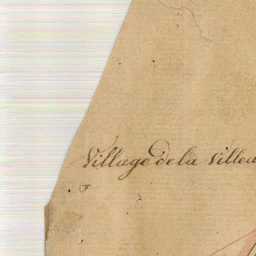 Village de la Villea